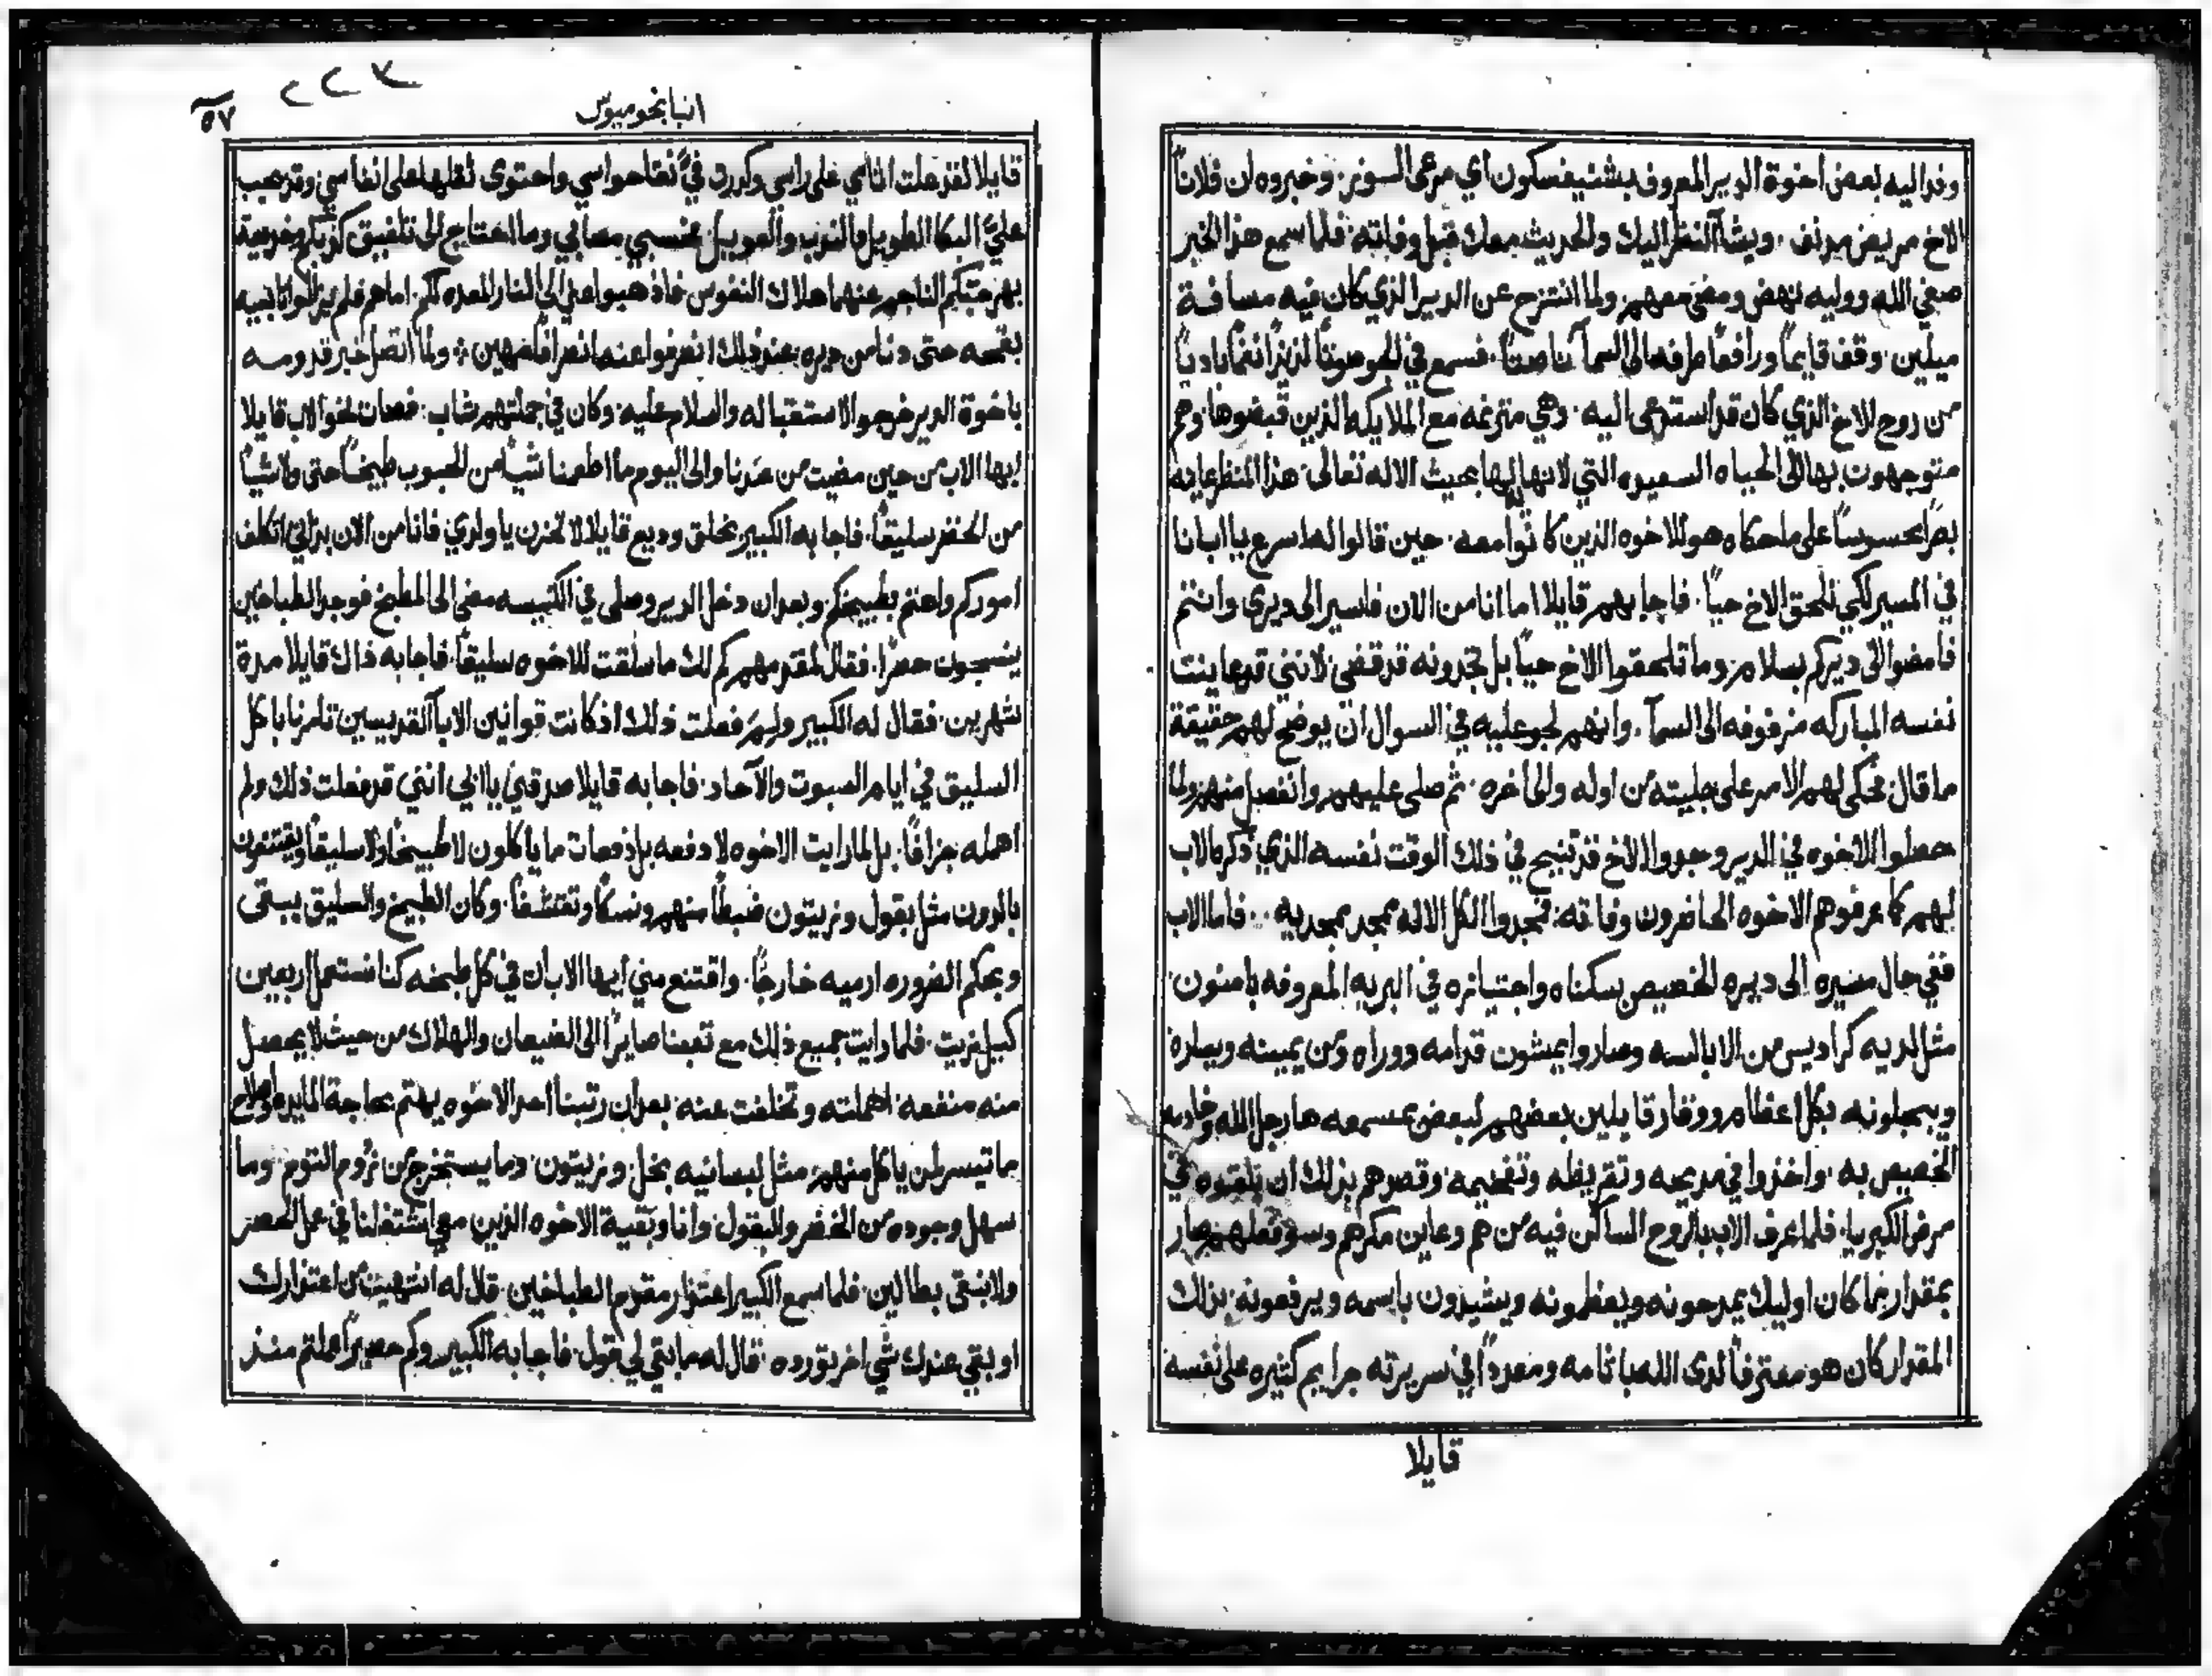 وفد اليه بعض اخوة الدير المعروف بشنيفسكون اي مرعى السونز. وخبروه ان فلاناً
الاخ مريض مدنف. ويشآ النظر اليك والحديث معك قبل وفاته. فلما سمع هذا الخبر
صفي الله ووليه نهض ومضى معهم. ولما انتزح عن الدير الذي كان فيه مسافة
ميلين. وقف قايماً ورافعاً طرفه الى السمآ ناصتاً. فسمع في الجو صوتاً لذيذاً نغماً بادياً
من روح الاخ الذي كان قد استدعى اليه. وهي مترنمه مع الملايكه الذين قبضوها وهم
متوجهون بها الى الحياه السعيده التي لا نهاية لها بحيث الاله تعالى. هذا المنظر عاينه
بصراً محسوساً على ما حكاه هوللاخوه الذين كانوا معه. حين قالوا له اسرع يا ابانا
في المسير لكي نلحق الاخ حياً. فاجابهم قايلا اما انا من الان فاسير الى ديري وانتم
فامضوا الى ديركم بسلام. وما تلحقوا الاخ حياً بل تجدونه قد قضى لانني قد عاينت
نفسه المباركه مزفوفه الى السمآ. وانهم لجو عليه في السوال ان يوضح لهم حقيقة
ما قال. فحكى لهم الامر على جليته من اوله والى اخره. ثم صلى عليهم وانفصل منهم ولما
حصلوا الاخوه في الدير وجدوا الاخ قد تنيح في ذلك الوقت نفسه الذي ذكره الاب
لهم كما عرفوهم الاخوه الحاضرون وفاته. فمجدوا الكل الاله ممجد ممجديه .. فاما الاب
ففي حال مسيره الى ديره الخصيص بسكناه واجتيازه في البريه المعروفه بامنون.
مثل لديه كراديس من الابالسه وصاروا يمشون قدامه ووراه ومن يمينه ويساره
ويبجلونه بكل اعظام ووقار قايلين بعضهم لبعض بمسمعه ها رجل الله وخادمه
الخصيص به. واخذوا في مديحه وتقريظه وتفخيمه. وقصدهم بذلك ان يلقوه في
مرض الكبريا. فلما عرف الاب بالروح الساكن فيه من هم وعاين مكرهم وسو فعلهم صار
بمقدار ما كان اوليك يمدحونه ويعظمونه ويشيدون باسمه ويرفعونه. بذلك
المقدار كان هو معترفاً لدى الله باثامه ومعدداً في سريرته جرايم كثيره على نفسه
قايلا
٢٢٧
٥٧
انبا بخوميوس
قايلا لقد علت اثامي على راسي وكدرت فيّ نقا حواسي واحتوى ثقلها على انفاسي وقد يجب
عليّ البكا الطويل والندب والعويل. فحسبي مصابي وما احتاج الى تلفيق كذبكم وخديعة
بهرجتكم الناجم عنهما هلاك النفوس فاذهبوا عني الى النار المعده لكم. اما هم فلم يزالوا تابعيه
بقحه حتى دنا من ديره. عند ذلك انصرفوا عنه انصرافاً مهين: ولما اتصل خبر قدومه
باخوة الدير خرجوا لاستقباله والسلام عليه. وكان في جملتهم شاب. فصاح نحو الاب قايلا
ايها الاب من حين مضيت من عندنا والى اليوم ما اطعمنا شياً من الحبوب طبيخاً حتى ولا شياً
من الخضر سليقاً. فاجابه الكبير بخلق وديع قايلا لا تحزن يا ولدي فانا من الان بذاتي اتكلف
اموركم واهتم بطبيخكم وبعد ان دخل الدير وصلى في الكنيسه مضى الى المطبخ فوجد الطباخين
ينسجون حصراً. فقال لمقدمهم كم لك ما سلقت للاخوه سليقاً. فاجابه ذاك قايلا مدة
شهرين. فقال له الكبير ولم فعلت ذلك اذ كانت قوانين الابآ القديسين تامرنا باكل
السليق في ايام السبوت والآحاد. فاجابه قايلا صدقني يا ابي انني قد فعلت ذلك ولم
اهمله جزافاً. بل لما رايت الاخوه لا دفعه بل دفعات ما ياكلون لا طبيخاً ولا سليقاً ويقتنعون
بالدون مثل بقول وزيتون ضبطاً منهم ونسكاً وتقشفاً. وكان الطبيخ والسليق يبقى
وبحكم الضروره ارميه خارجاً. واقتنع مني ايها الاب ان في كل طبخه كنا نستعمل اربعين
كيل زيت. فلما رايت جميع ذلك مع تعبنا صايراً الى الضيعان والهلاك من حيث لا يحصل
منه منفعه اهملته وتخلفت عنه. بعد ان رتبنا احد الاخوه يهتم بحاجة المايده واصلاح
ما تيسر لمن ياكل منهم مثل لبسانيه بخل وزيتون. وما يستخرج من ثروم الثوم. وما
سهل وجوده من الخضر والبقول. وانا وبقية الاخوه الذين معي اشتغلنا في عمل الحصر
ولا نبقى بطالين. فلما سمع الكبير اعتذار مقدم الطباخين. قال له انتهيت من اعتذارك
او بقي عندك شي اخر تورده. قال له ما بقي لي قول. فاجابه الكبير وكم حصيراً عملتم منذ